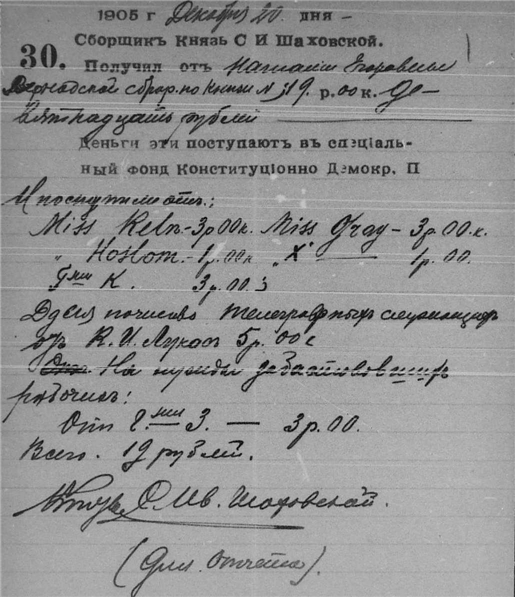 1905 г Декабря 20 дня –
Сборщикъ Князь С И Шаховской.
30. Получилъ отъ Наталии Егоровны
сбора по книги № 19 р. 00 к. Де-
вятнадцать рублей
Деньги эти поступаютъ въ спеціаль-
ный фондъ Конституціонно Демокр. П
И поступили отъ:
Miss Keln - 3 р 00 к. Miss Gray - 3 р. 00. к.
" - 1 р. 00 к "X" 1 р. 00.
Г жи К. 3 р. 00.
Для почтово телеграфныхъ
отъ К. И. 5 р. 00
На нужды забастовавшихъ
рабочихъ:
Отъ Г. жи З. — 3 р. 00.
Всего. 19 рублей.
Князь С. Ив. Шаховской.
(Для отчета).